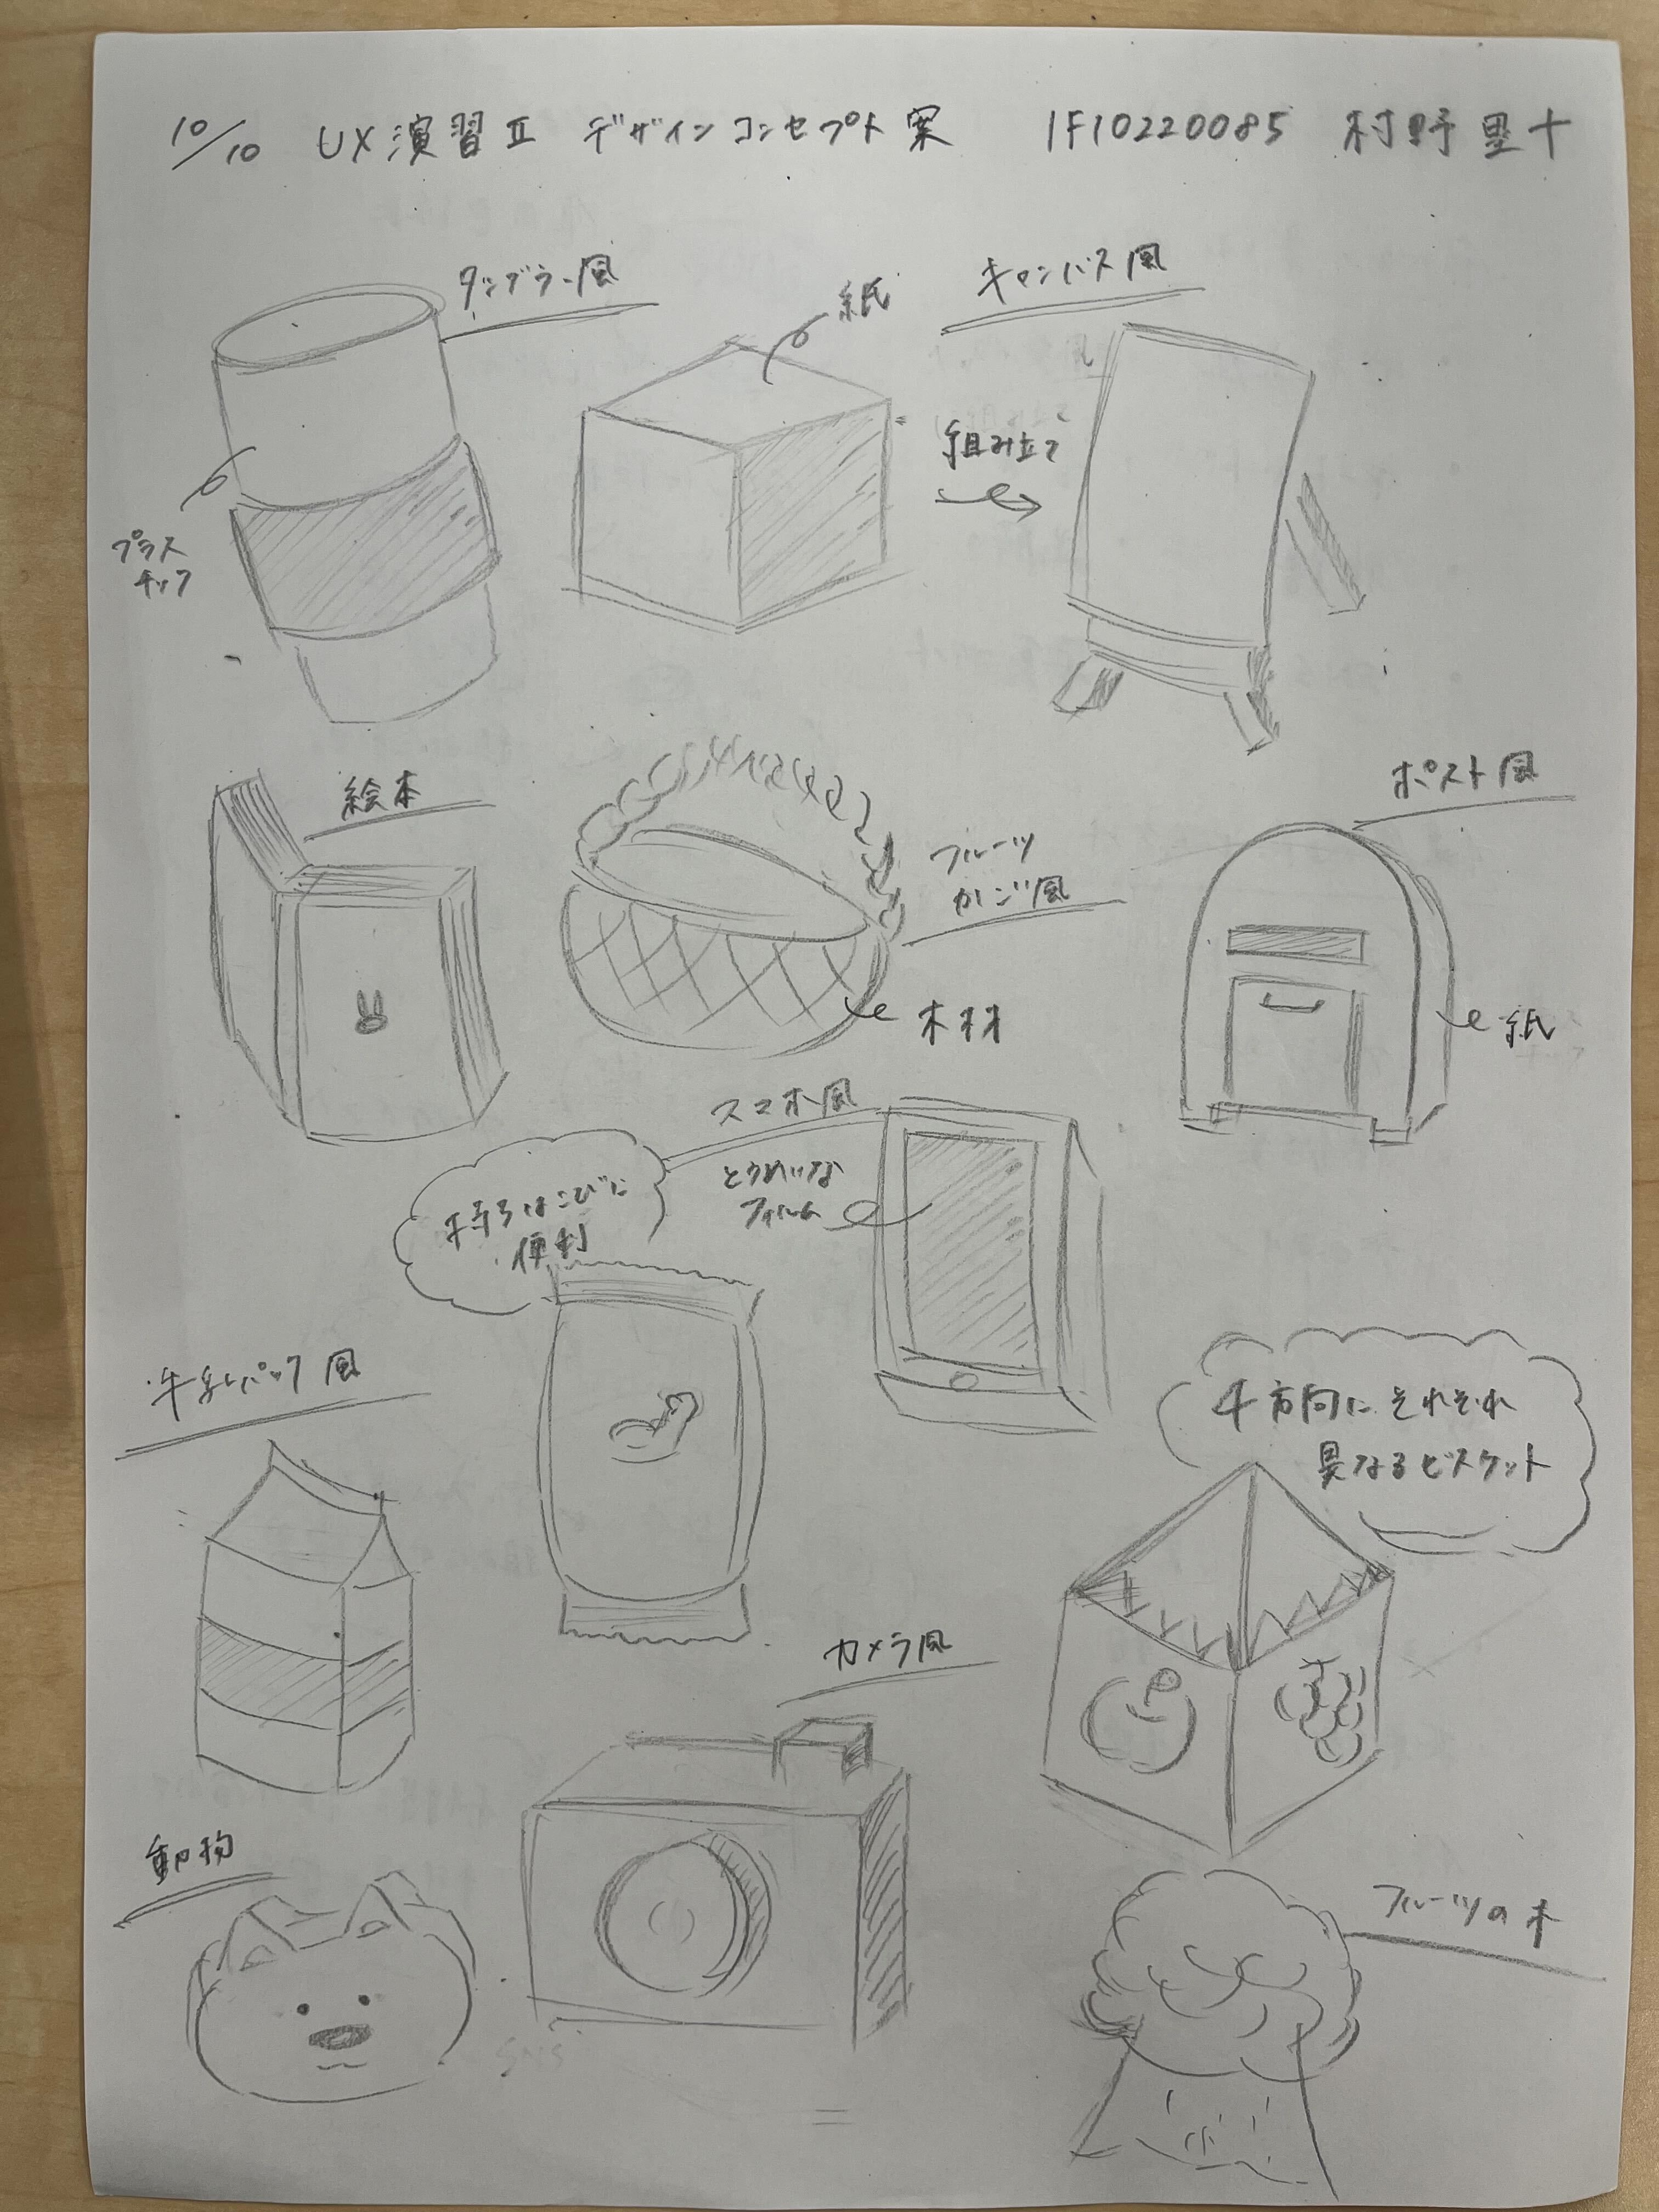 10/10 UX演習Ⅱ デザインコンセプト案 1F10220085 村野里十
タンブラー風
紙
キャンバス風
組み立て
プラス
チック
絵本
フルーツ
かご風
木材
ポスト風
紙
スマホ風
とうめいな
フィルム
持ちはこびに
便利
牛乳パック風
4方向にそれぞれ
異なるビスケット
カメラ風
動物
フルーツの木